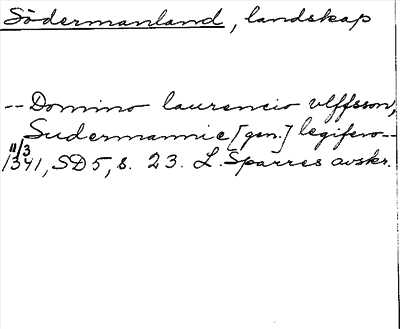 Södermanland, landskap
-- Domino laurencio vlffsson,
Sudermannie [gen.] legifero--
11/3
1341, SD5, s. 23. L. Sparres avskr.